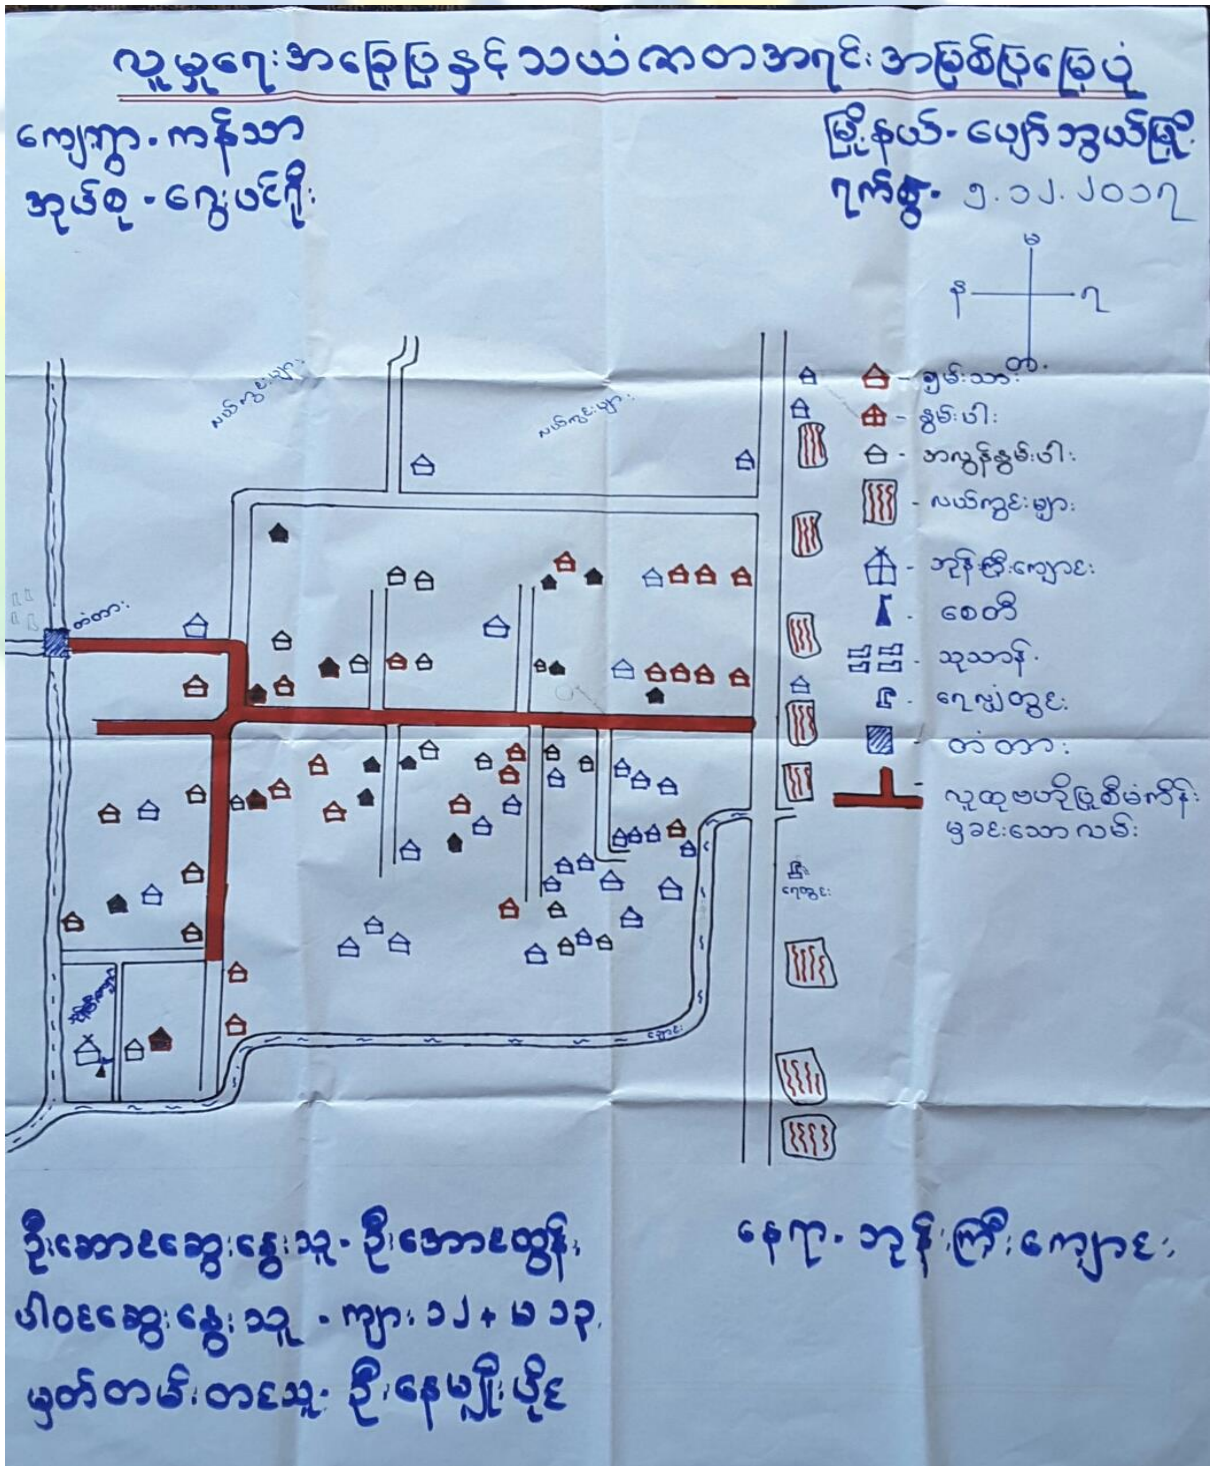 လူမှုရေးအခြေပြနှင့်သယံဇာတအရင်းအမြစ်ပြမြေပုံ
ကျေးရွာ - ကန်သာ
အုပ်စု - ဂွေးပင်ရိုး
မြို့နယ် - ပျော်ဘွယ်မြို့
ရက်စွဲ - ၅.၁၂.၂၀၁၇
မ
န
ရ
တ
လယ်ကွင်းများ
လယ်ကွင်းများ
တံတား
- ချမ်းသာ
- နွမ်းပါး
- အလွန်နွမ်းပါး
- လယ်ကွင်းများ
- ဘုန်းကြီးကျောင်း
- စေတီ
- သုသာန်
- ရေလှုံတွင်း
- တံတား
လူထုဗဟိုပြုစီမံကိန်း
မှခင်းသောလမ်း
ရေတွင်း
ချောင်း
ဦးဆောင်ဆွေးနွေးသူ - ဦးအောင်ထွန်း
ပါဝင်ဆွေးနွေးသူ - ကျား ၁၂ + မ ၁၃
မှတ်တမ်းတင်သူ - ဦးနေမျိုးပိုင်
နေရာ - ဘုန်းကြီးကျောင်း